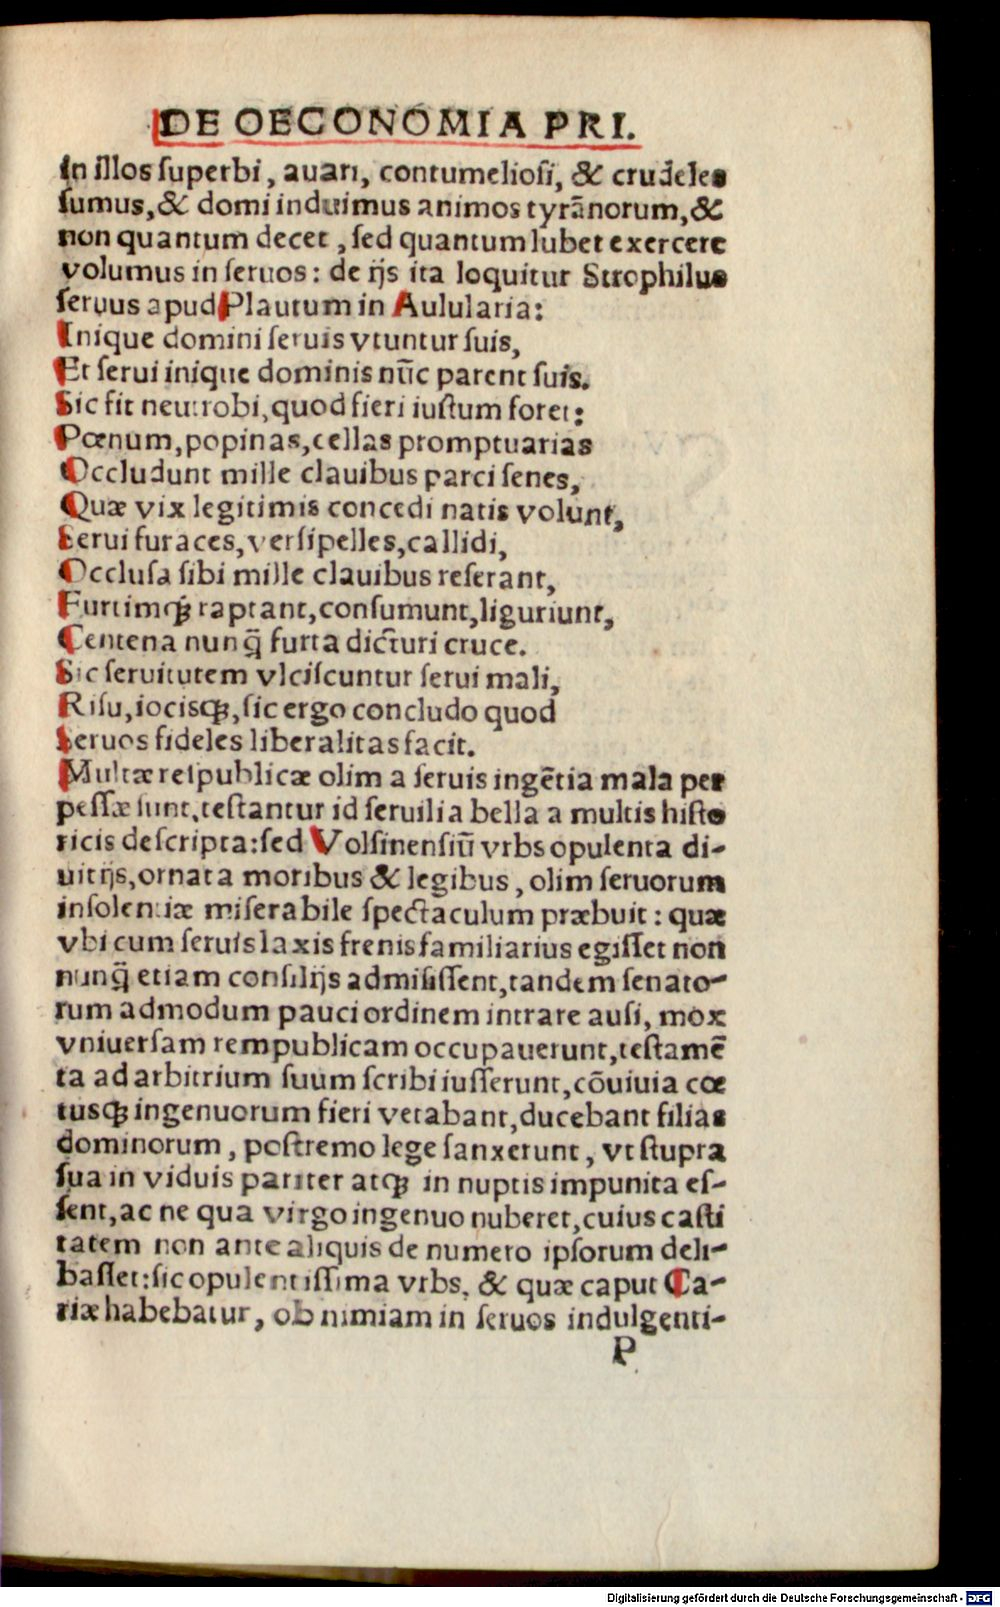 DE OECONOMIA PRI.
in illos superbi, auari, contumeliosi, & crudeles
sumus, & domi induimus animos tyrānorum, &
non quantum decet, sed quantum lubet exercere
volumus in seruos: de ijs ita loquitur Strophilus
seruus apud Plautum in Aulularia:
Inique domini seruis vtuntur suis,
Et serui inique dominis nūc parent suis.
Sic fit neutrobi, quod fieri iustum foret:
Pœnum, popinas, cellas promptuarias
Occludunt mille clauibus parci senes,
Quæ vix legitimis concedi natis volunt,
Serui furaces, versipelles, callidi,
Occlusa sibi mille clauibus reserant,
Furtimqꝫ raptant, consumunt, liguriunt,
Centena nunq̃ furta dicturi cruce.
Sic seruitutem vlciscuntur serui mali,
Risu, iocisqꝫ, sic ergo concludo quod
Seruos fideles liberalitas facit.
Multæ reipublicæ olim a seruis ingētia mala per
pessæ sunt, testantur id seruilia bella a multis histo
ricis descripta: sed Volsinensiū vrbs opulenta di-
uitijs, ornata moribus & legibus, olim seruorum
insolentiæ miserabile spectaculum præbuit: quæ
vbi cum seruis laxis frenis familiarius egisset non
nunq̃ etiam consilijs admisissent, tandem senato-
rum admodum pauci ordinem intrare ausi, mox
vniuersam rempublicam occupauerunt, testamē
ta ad arbitrium suum scribi iusserunt, cōuiuia cœ
tusqꝫ ingenuorum fieri vetabant, ducebant filias
dominorum, postremo lege sanxerunt, vt stupra
sua in viduis pariter atqꝫ in nuptis impunita es-
sent, ac ne qua virgo ingenuo nuberet, cuius casti
tatem non ante aliquis de numero ipsorum deli-
basset: sic opulentissima vrbs, & quæ caput Ca-
riæ habebatur, ob nimiam in seruos indulgenti-
P
Digitalisierung gefördert durch die Deutsche Forschungsgemeinschaft - DFG